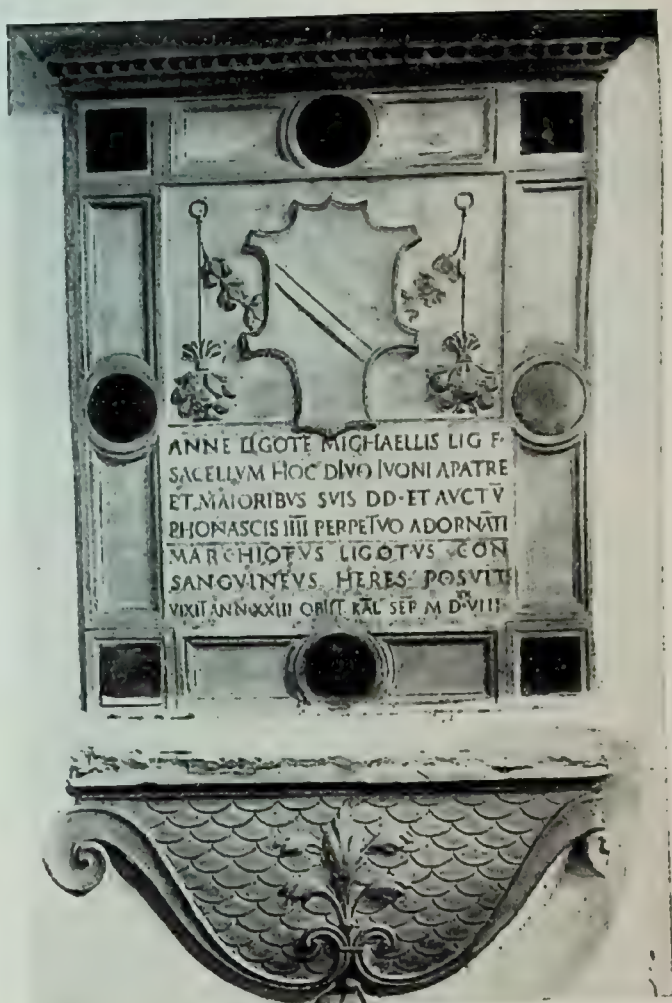 ANNE LIGOTE MICHAELLIS LIG F·
SACELLVM HOC DIVO IVONI APATRE
ET MAIORIBVS SVIS DD·ET AVCTV̄
PHONASCIS IIII PERPETVO ADORNĀTI
MARCHIOTVS LIGOTVS CON
SANGVINEVS HERES POSVIT
VIXIT ANN XXIII OBIIT KAL̄ SEP M D VIII